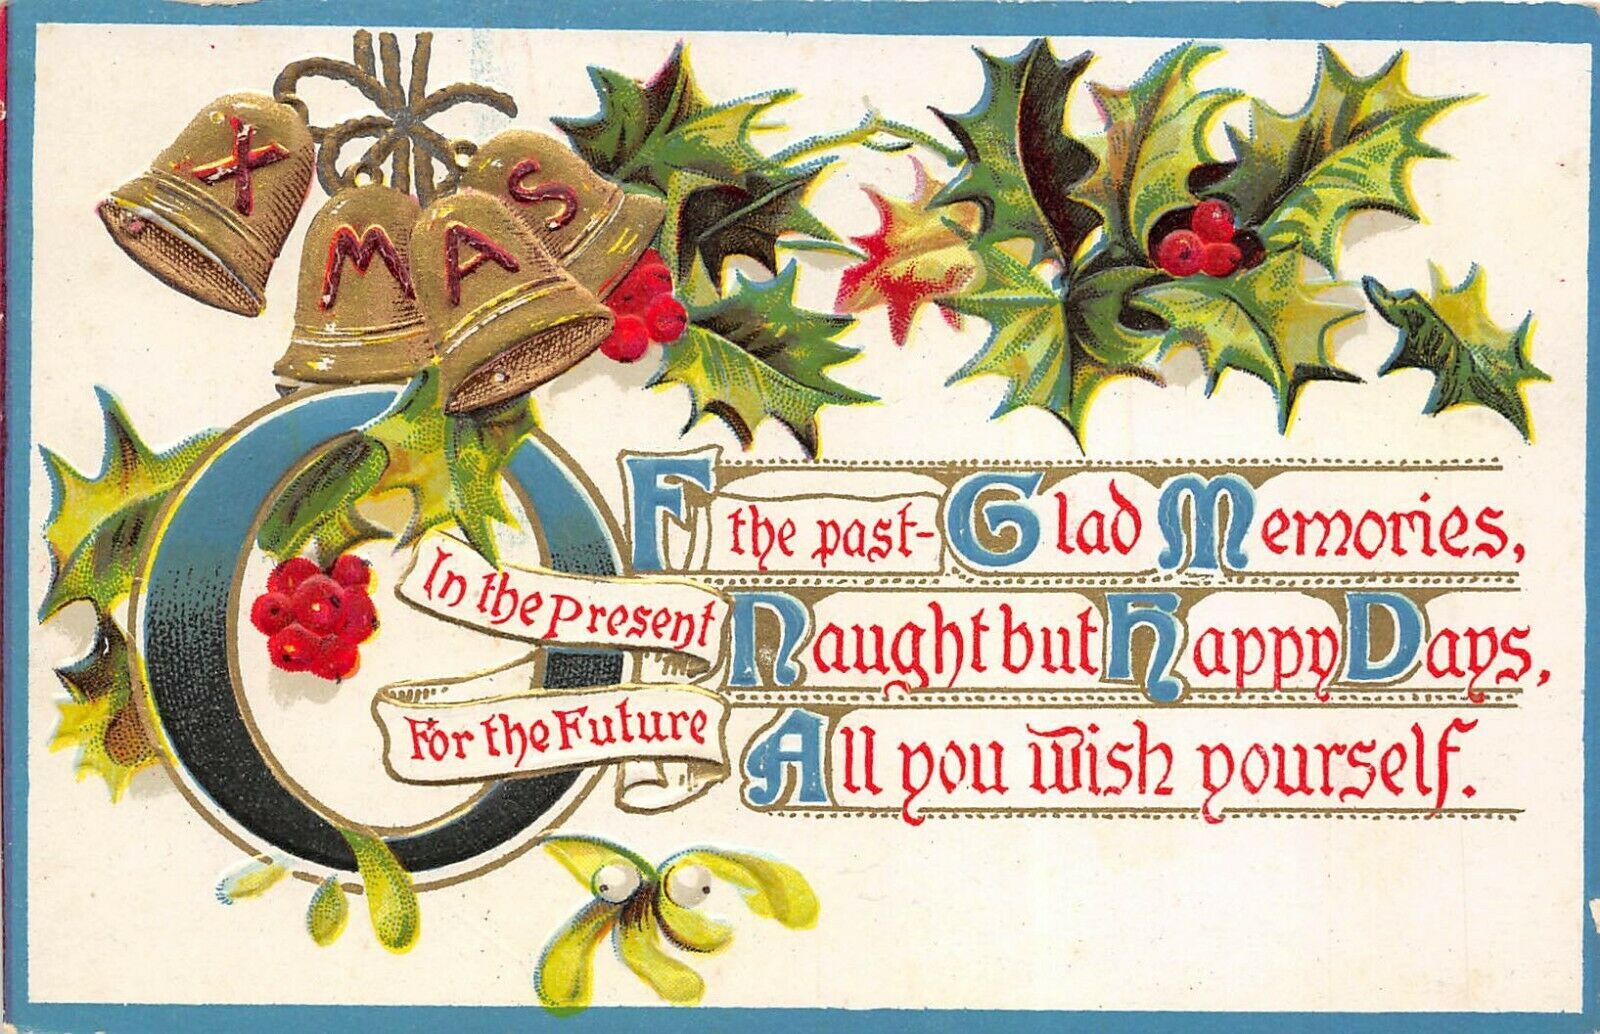 XMAS
OF the past- Glad Memories,
In the Present Naught but Happy Days,
For the Future All you wish yourself.